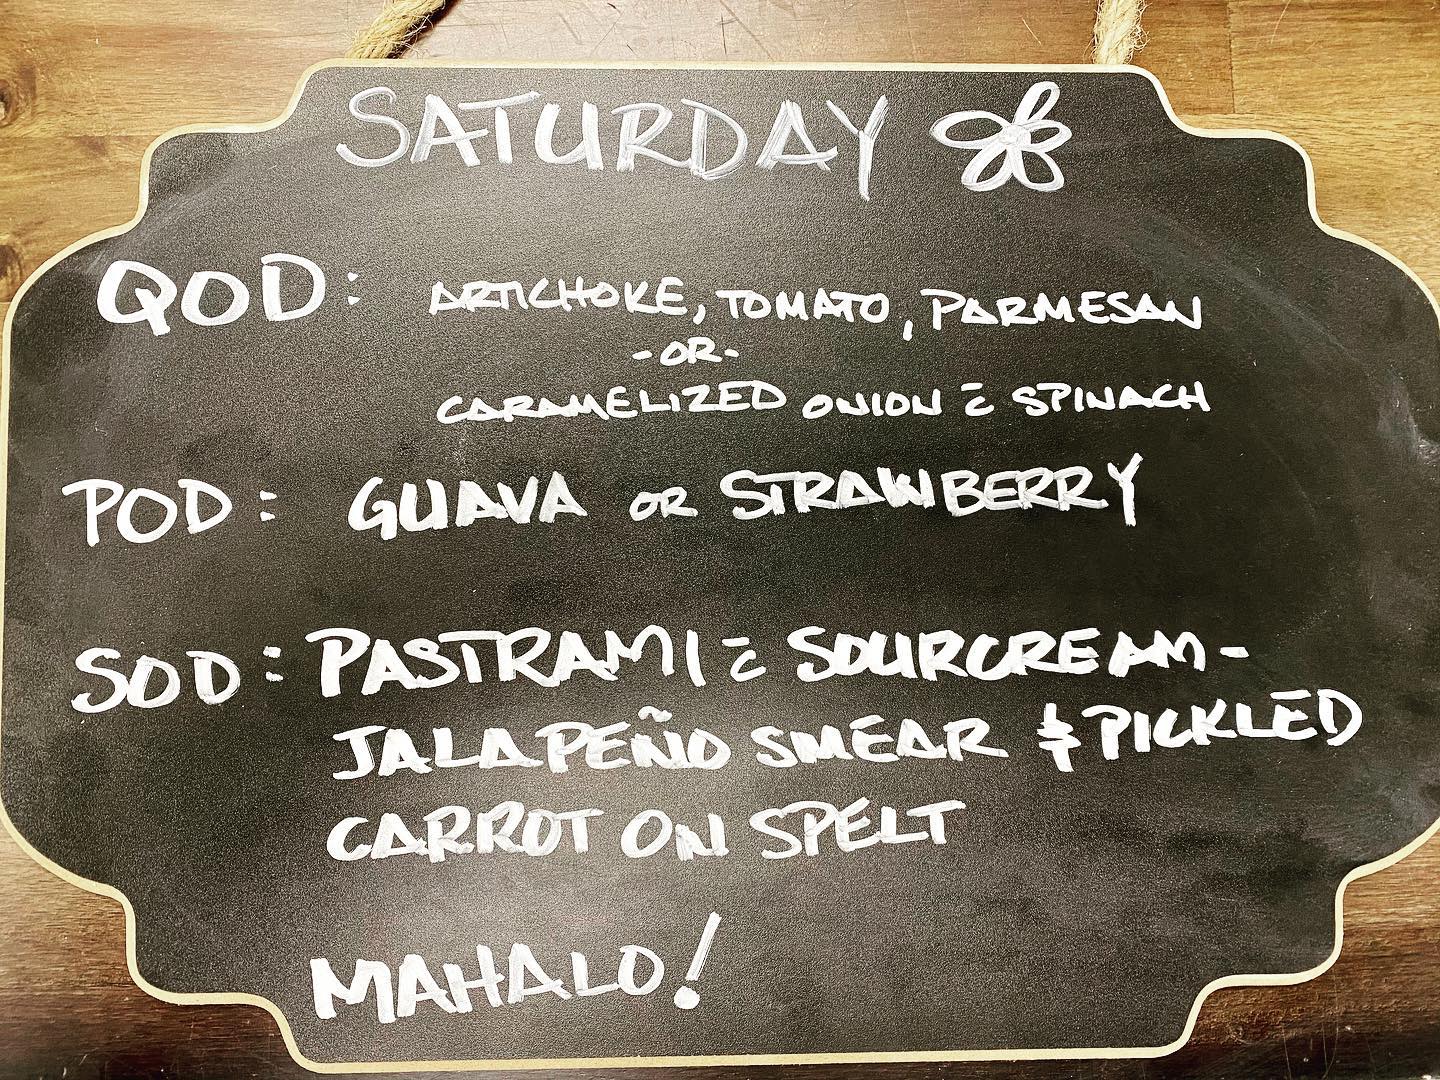 SATURDAY
QOD: ARTICHOKE, TOMATO, PARMESAN
-OR-
CARAMELIZED ONION c̄ SPINACH
POD: GUAVA OR STRAWBERRY
SOD: PASTRAMI c̄ SOURCREAM-
JALAPEÑO SMEAR & PICKLED
CARROT ON SPELT
MAHALO!